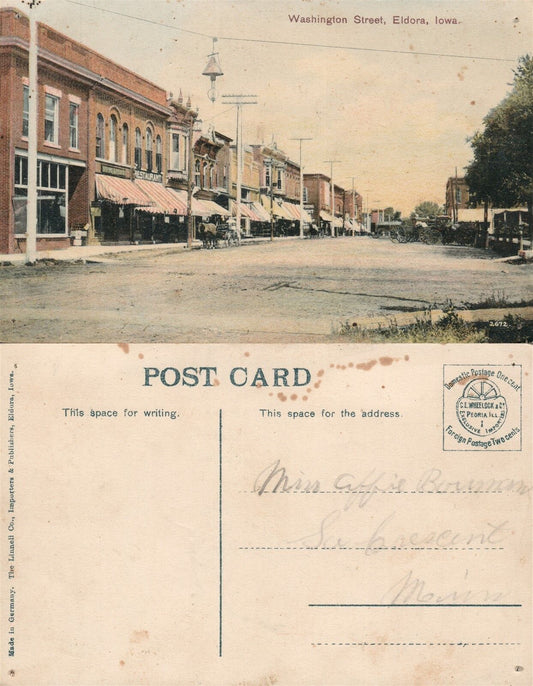 Washington Street, Eldora, Iowa.
RESTAURANT
2672
POST CARD
This space for writing.
This space for the address.
Domestic Postage One cent
C.E. WHEELOCK & CO
PEORIA ILL
EXCLUSIVE IMPORTERS
Foreign Postage Two cents
Made in Germany. The Linnell Co., Importers & Publishers, Eldora, Iowa.
Miss Affie Bowman
La Crescent
Minn